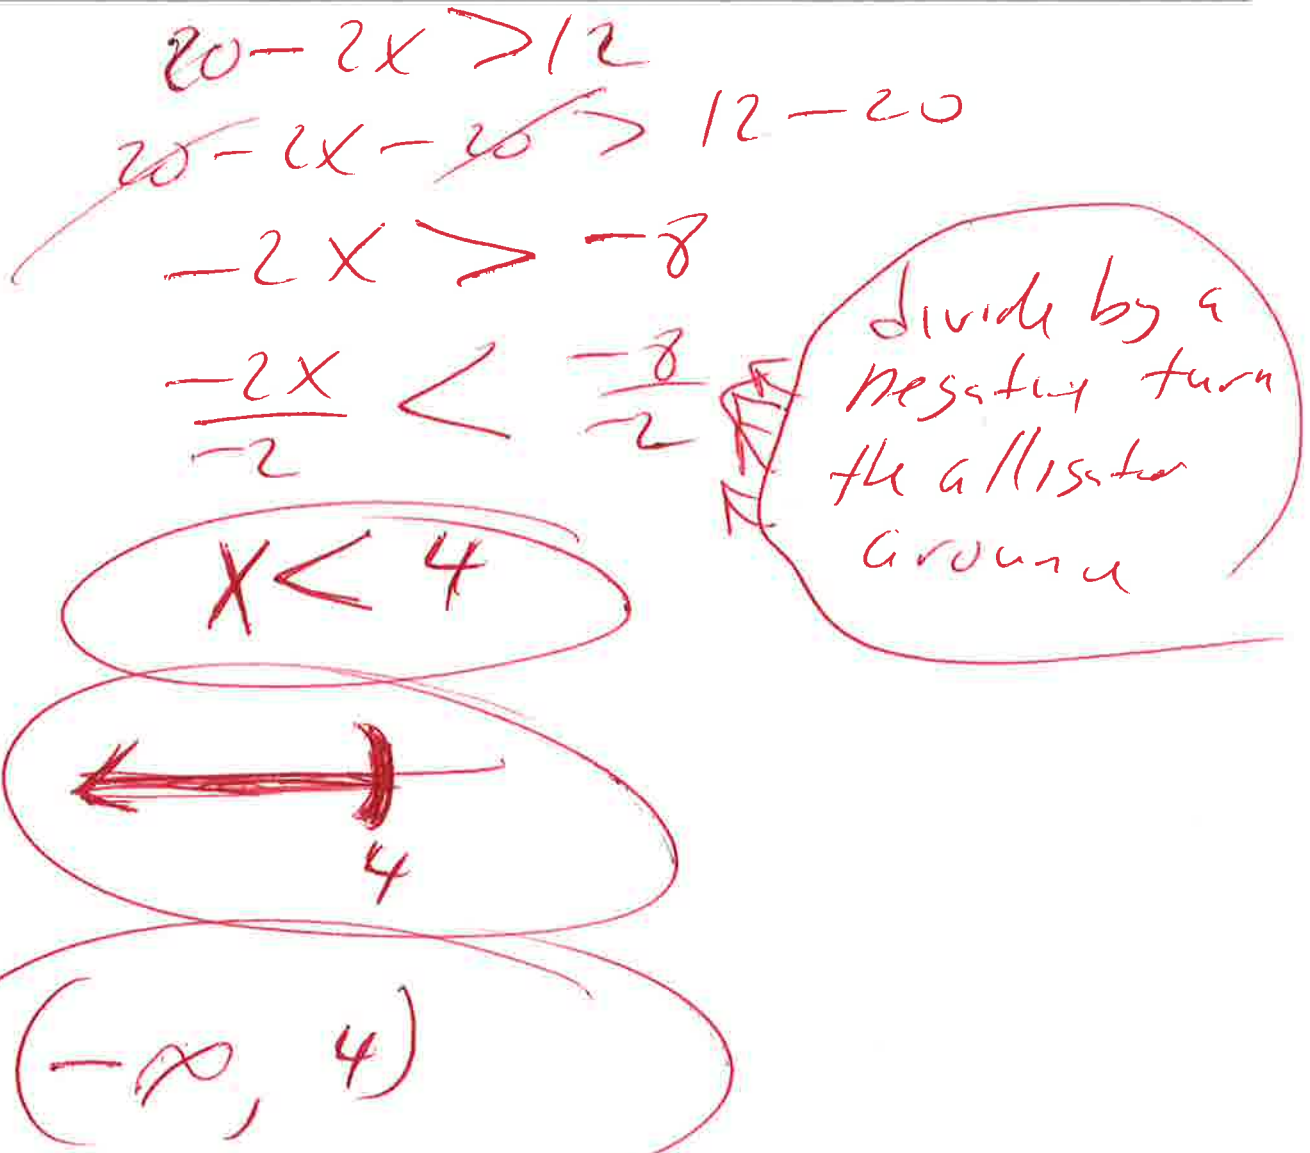 20 - 2x > 12
20 - 2x - 20 > 12 - 20
-2x > -8
-2x/-2 < -8/-2
divide by a
negative turn
the alligator
around
x < 4
4
(-∞, 4)